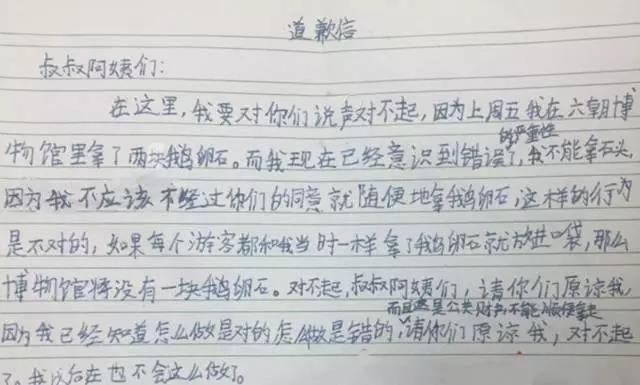 道歉信
叔叔阿姨们:
在这里,我要对你们说声对不起,因为上周五我在六朝博
的严重性
物馆里拿了两块鹅卵石。而我现在已经意识到错误了,我不能拿石头,
因为我不应该不经过你们的同意就随便地拿鹅卵石,这样的行为
是不对的,如果每个游客都和我当时一样拿了鹅卵石就放进口袋,那么
博物馆将没有一块鹅卵石。对不起,叔叔阿姨们,请你们原谅我,
而且这是公共财产不能顺便拿走
因为我已经知道怎么做是对的怎么做是错的,请你们原谅我,对不起
了。我以后在也不会这么做了。